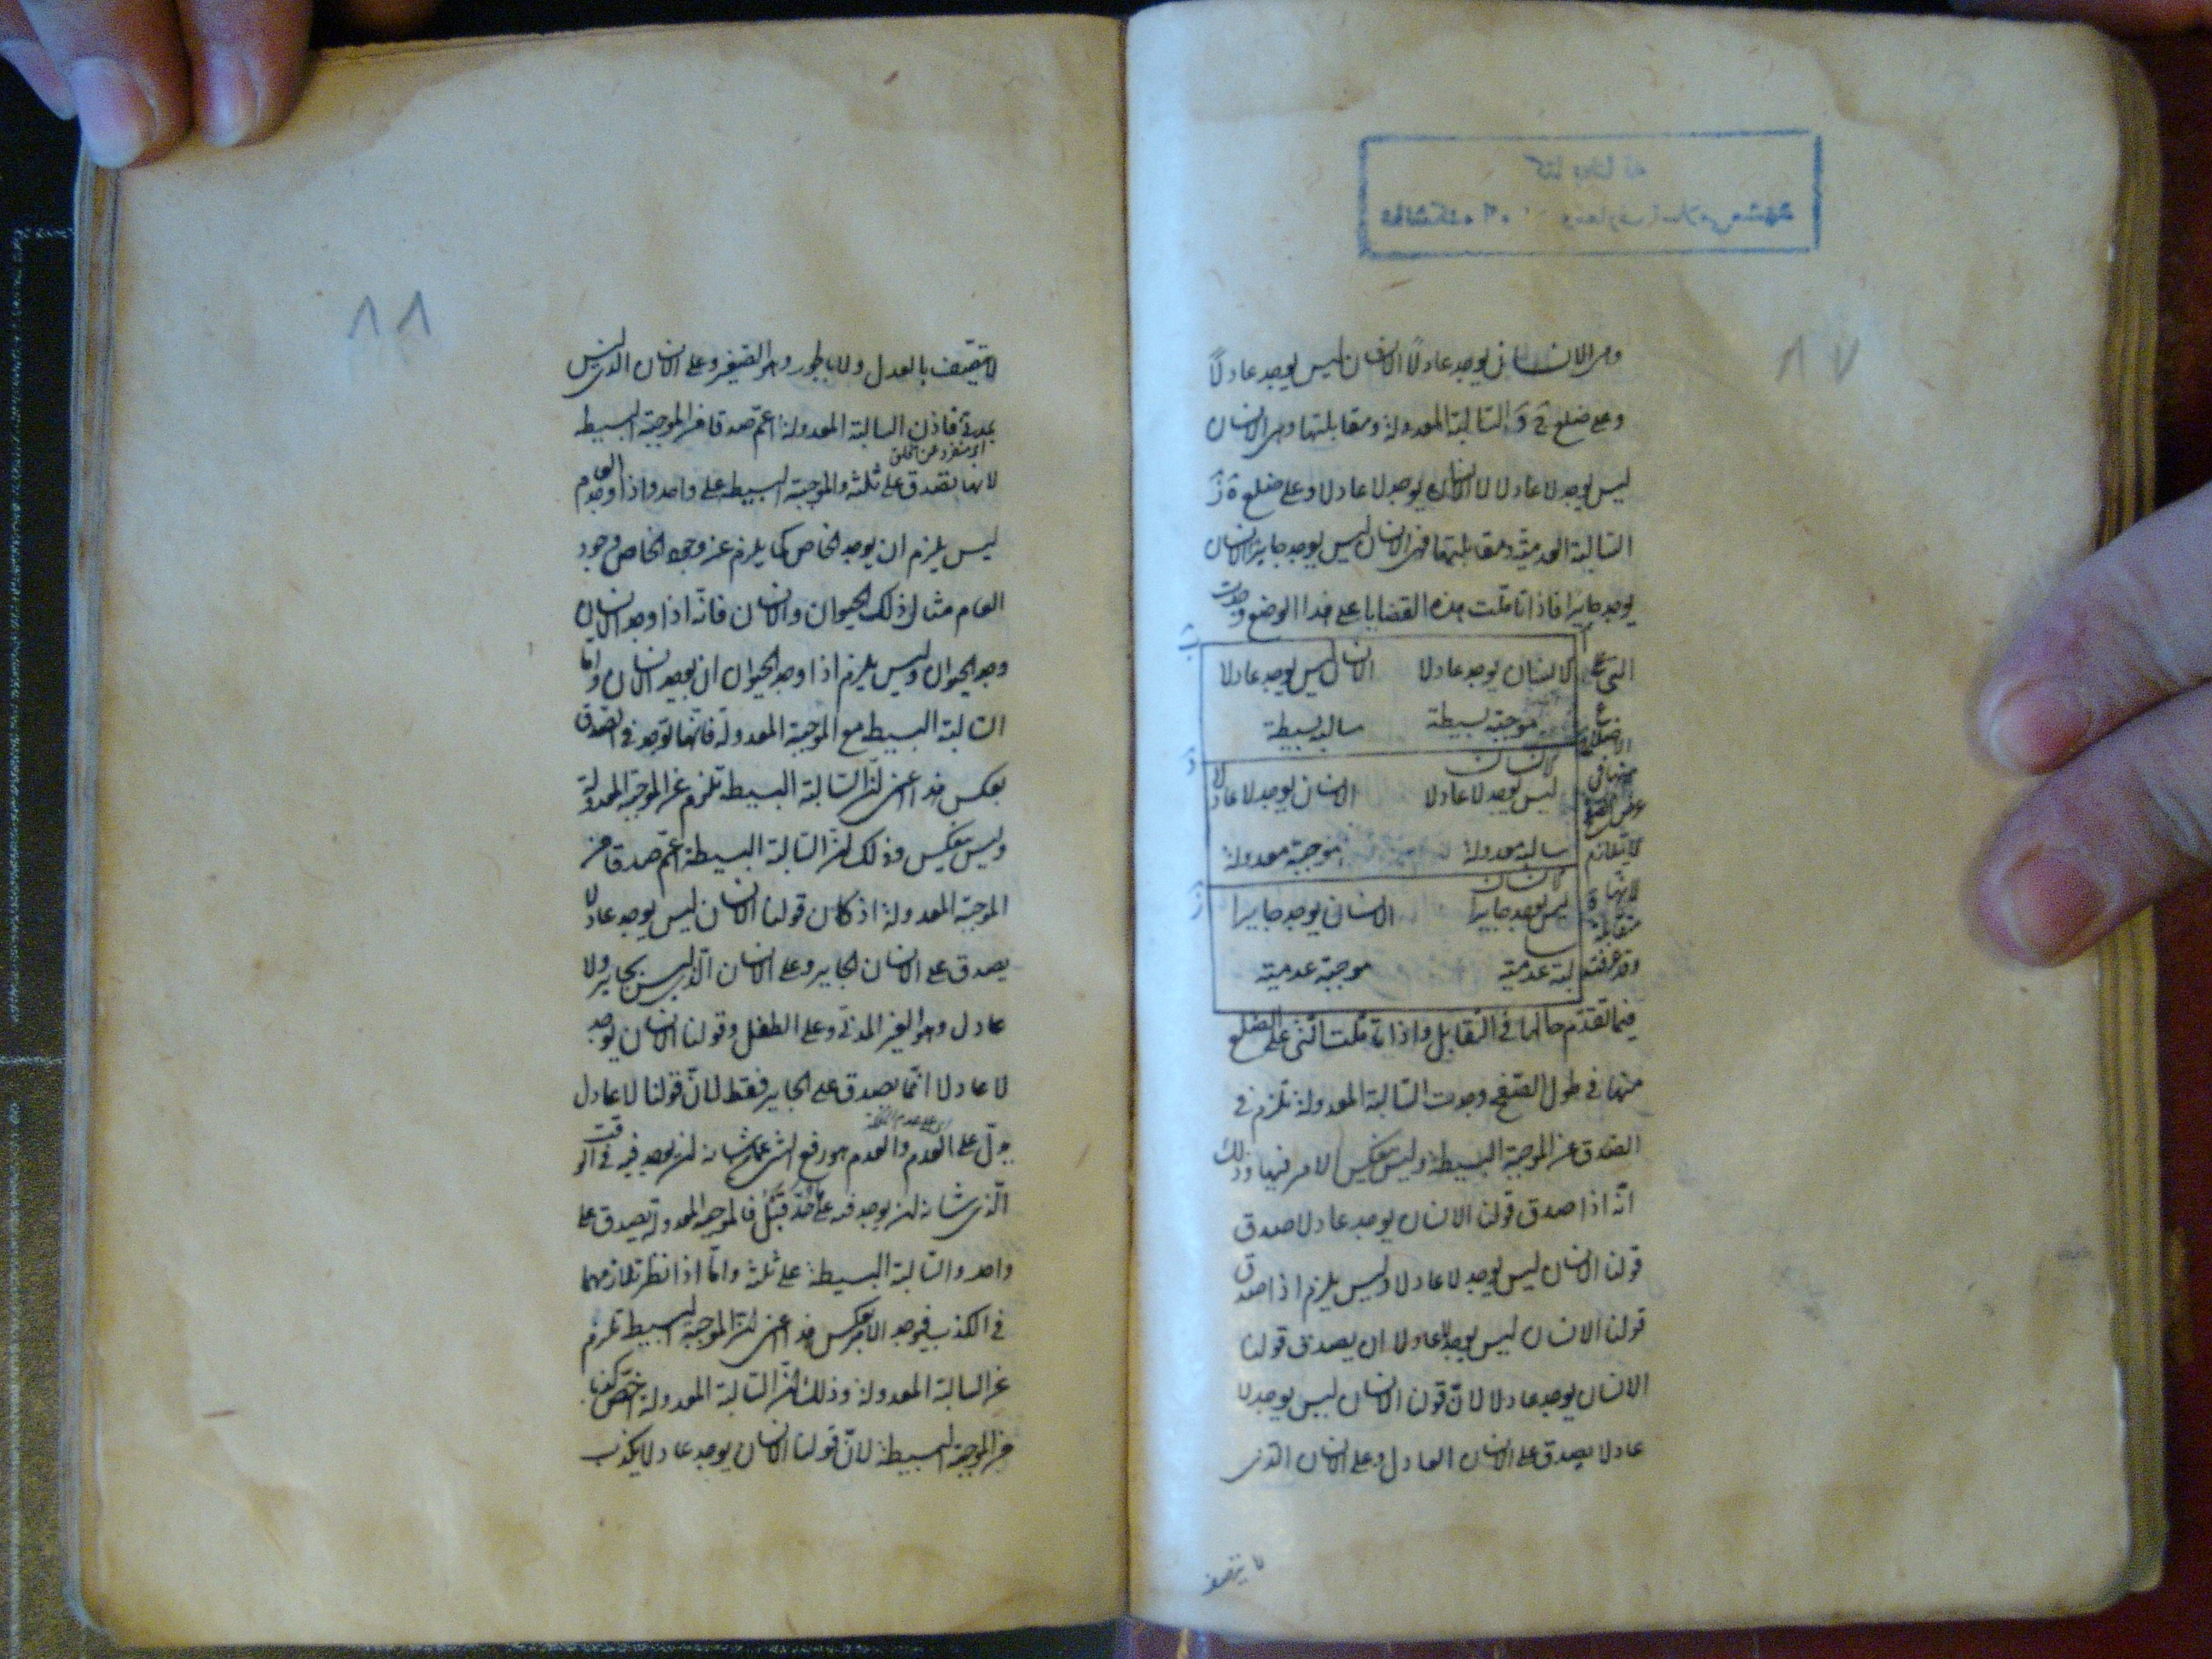 ٨٧
وهو الانسان يوجد عادلاً الانسان ليس يوجد عادلاً
وعلى ضلع ج د السالبة المعدولة ومقابلتها وهو الانسان
ليس يوجد لا عادلا الانسان يوجد لا عادلا وعلى ضلع ة ز
السالبة العدمية ومقابلتها فهو الانسان ليس يوجد جايرا الانسان
يوجد جايرا فاذا تاملت هذه القضايا على هذا الوضع وجدت
التى على
الانسان يوجد عادلا الانسان ليس يوجد عادلا
موجبة بسيطة سالبة بسيطة
الاضلاع
منها فى
الانسان
ليس يوجد لا عادلا الانسان يوجد لا عادلا
عرض الصفح
لا تتلازم
سالبة معدولة موجبة معدولة
لانها
متقابلة
الانسان
ليس يوجد جايرا الانسان يوجد جايرا
وقد عرفت
سالبة عدمية موجبة عدمية
فيما تقدم حالها فى التقابل واذا تاملت التى على الضلع
منها فى طول الصفح وجدت السالبة المعدولة تلزم فى
الصدق عن الموجبة البسيطة وليس ينعكس الامر فيها وذلك
انّه اذا صدق قولنا الانسان يوجد عادلا صدق
قولنا الانسان ليس يوجد لا عادلا وليس يلزم اذا صدق
قولنا الانسان ليس يوجد لا عادلا ان يصدق قولنا
الانسان يوجد عادلا لانّ قولنا الانسان ليس يوجد لا
عادلا يصدق على الانسان العادل وعلى الانسان الذى
لا يتصف
٨٨
لا يتصف بالعدل ولا بالجور وهو الصغير وعلى الانسان الذى ليس
بمدنى فاذن السالبة المعدولة اعمّ صدقا من الموجبة البسيطة
اى منفرد عن الخلق
لانها تصدق على ثلثة والموجبة البسيطة على واحد واذا وجد العام
ليس يلزم ان يوجد الخاص كما يلزم عن وجود الخاص وجود
العام مثال ذلك الحيوان والانسان فانّه اذا وجد الانسان
وجد الحيوان وليس يلزم اذا وجد الحيوان ان يوجد الانسان وامّا
السالبة البسيطة مع الموجبة المعدولة فانّها توجد فى الصدق
بعكس هذا اعنى انّ السالبة البسيطة تلزم عن الموجبة المعدولة
وليس ينعكس وذلك انّ السالبة البسيطة اعمّ صدقا من
الموجبة المعدولة اذ كان قولنا الانسان ليس يوجد عادلا
يصدق على الانسان الجاير وعلى الانسان الذى ليس بجاير ولا
عادل وهو الغير المدنى وعلى الطفل وقولنا الانسان يوجد
لا عادلا انّما يصدق على الجاير فقط لانّ قولنا لا عادل
يدلّ على العدم والعدم هو رفع الشى عمّا شانه ان يوجد فيه فى الوقت
الّذى شانه ان يوجد فيه على ما حدّ قبل فالموجبة المعدولة تصدق على
واحد والسالبة البسيطة على ثلثة وامّا اذا نظر تلازمهما
فى الكذب فيوجد الامر بعكس هذا اعنى انّ الموجبة البسيطة تلزم
عن السالبة المعدولة وذلك انّ السالبة المعدولة اخصّ كذبا
من الموجبة البسيطة لانّ قولنا الانسان يوجد عادلا يكذب